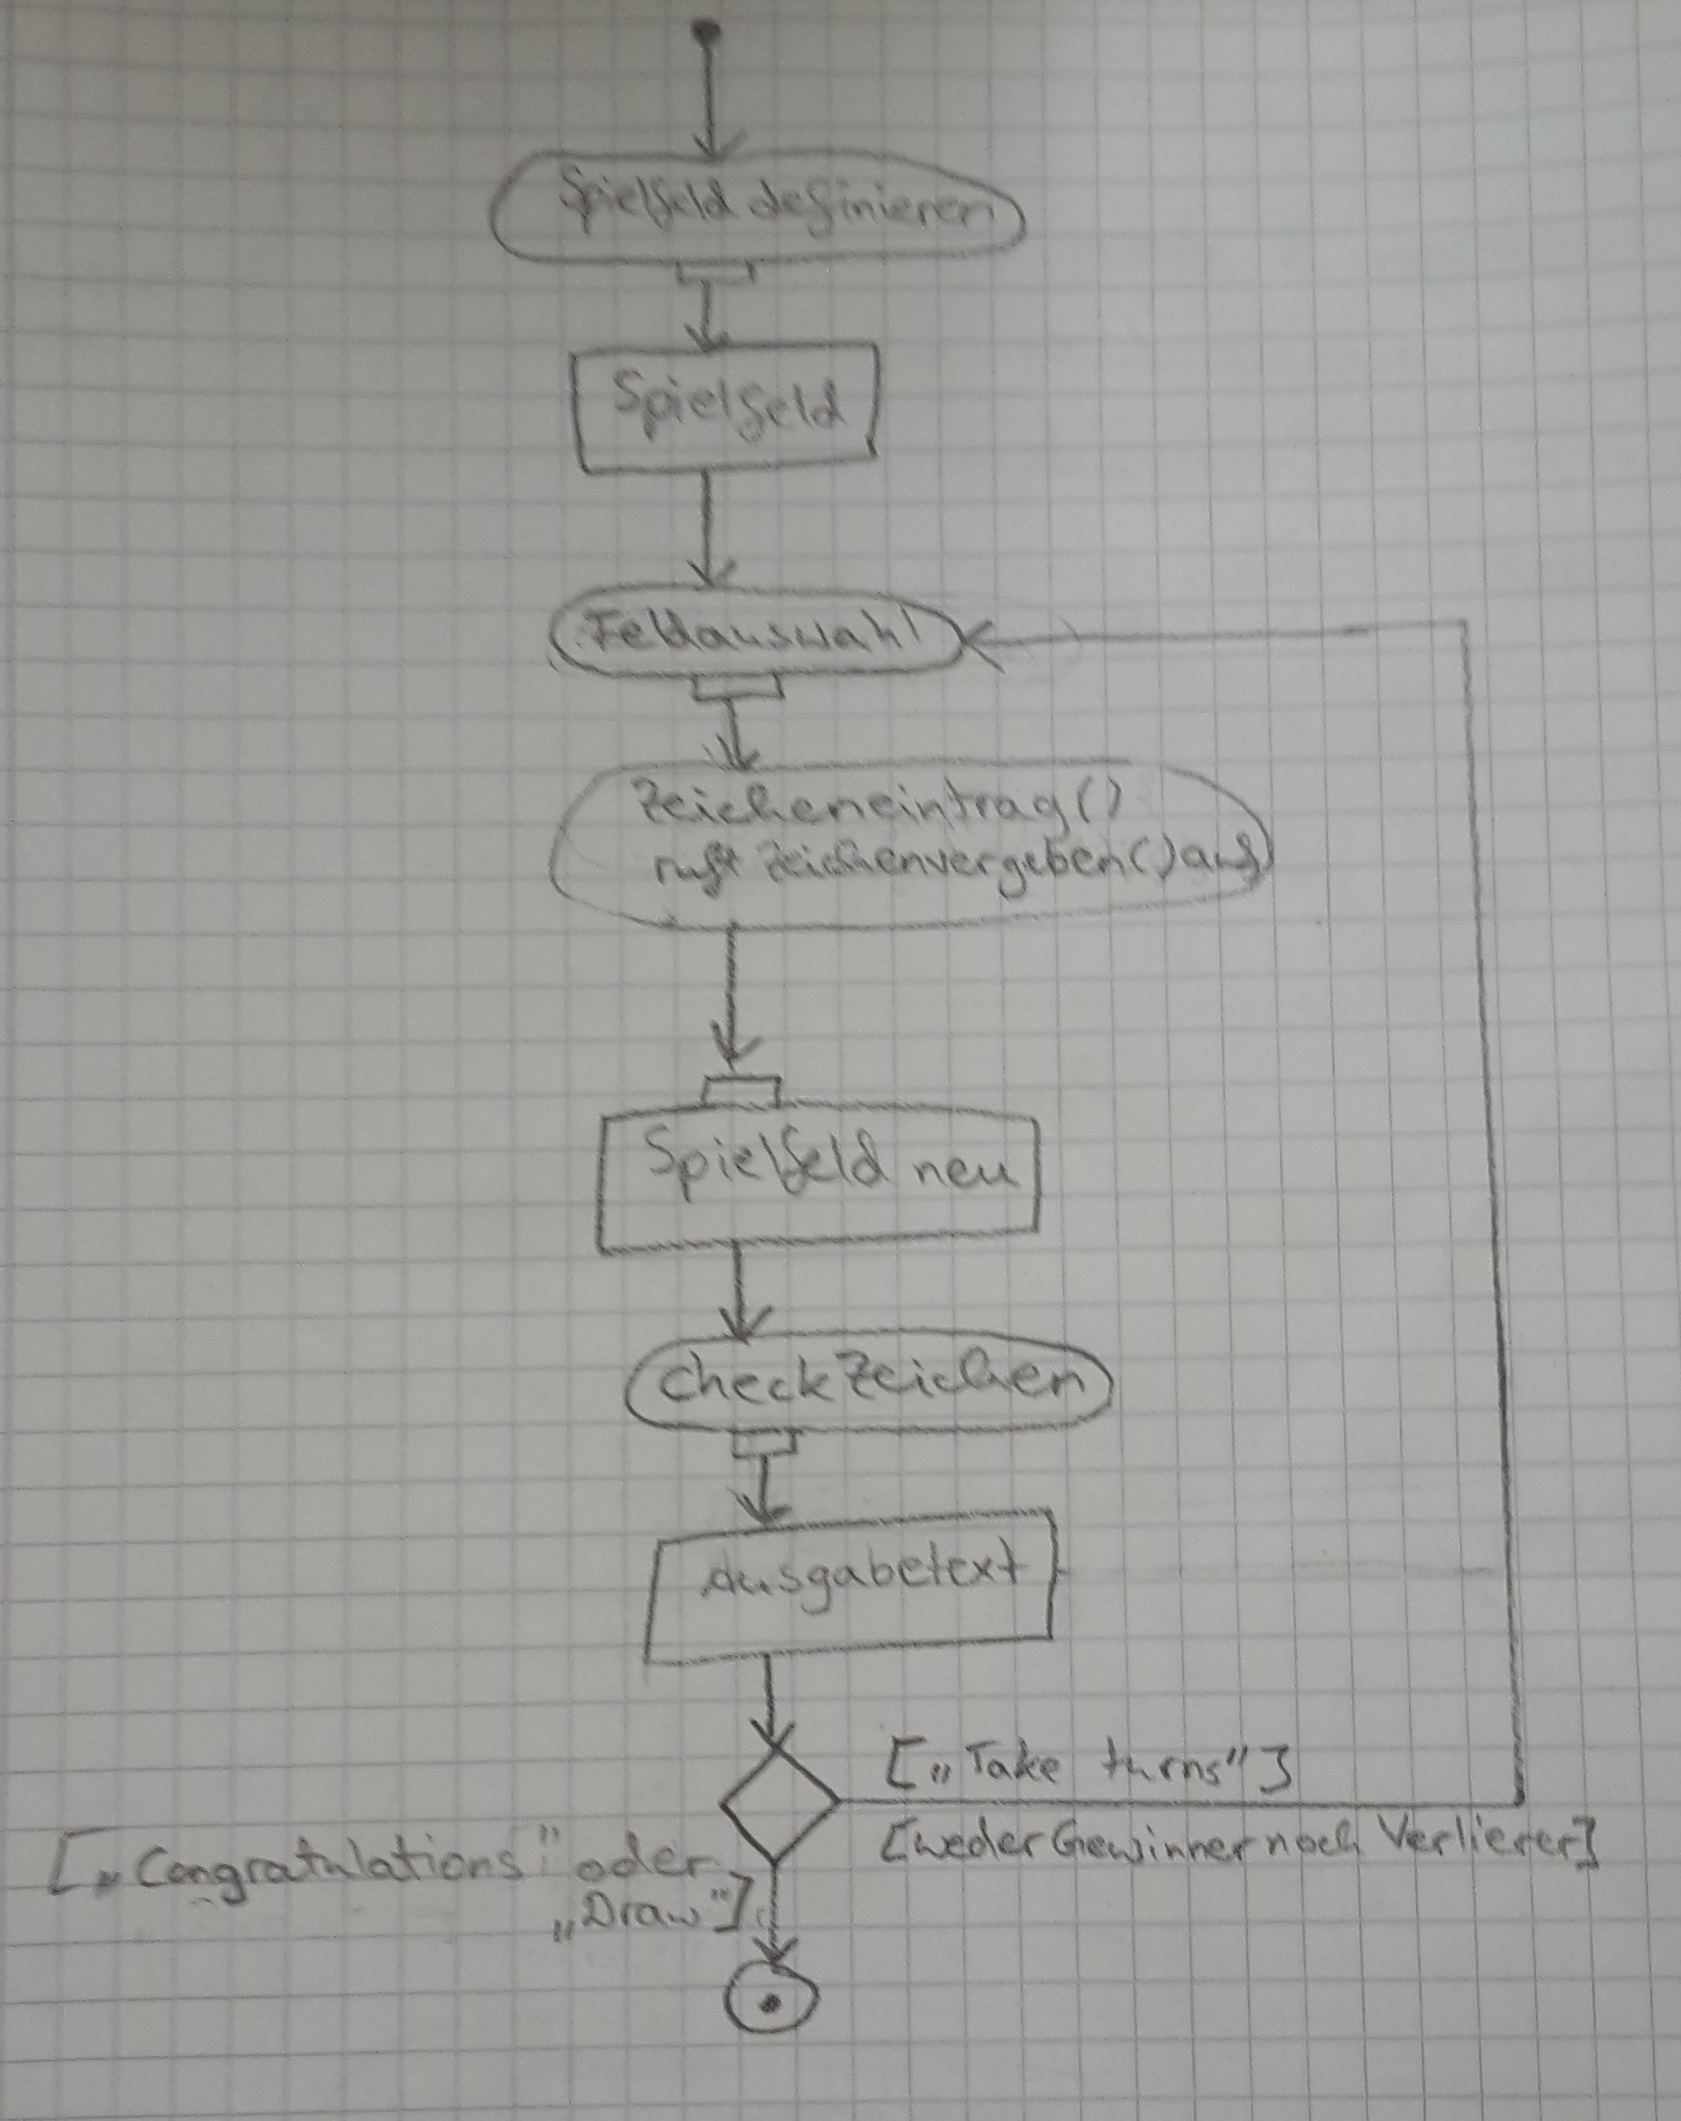 Spielfeld definieren
Spielfeld
Feldauswahl
Zeicheneintrag()
ruft Zeichenvergeben() auf
Spielfeld neu
checkZeichen
Ausgabetext
[„Take turns"]
[weder Gewinner noch Verlierer]
[„Congratulations" oder
„Draw"]